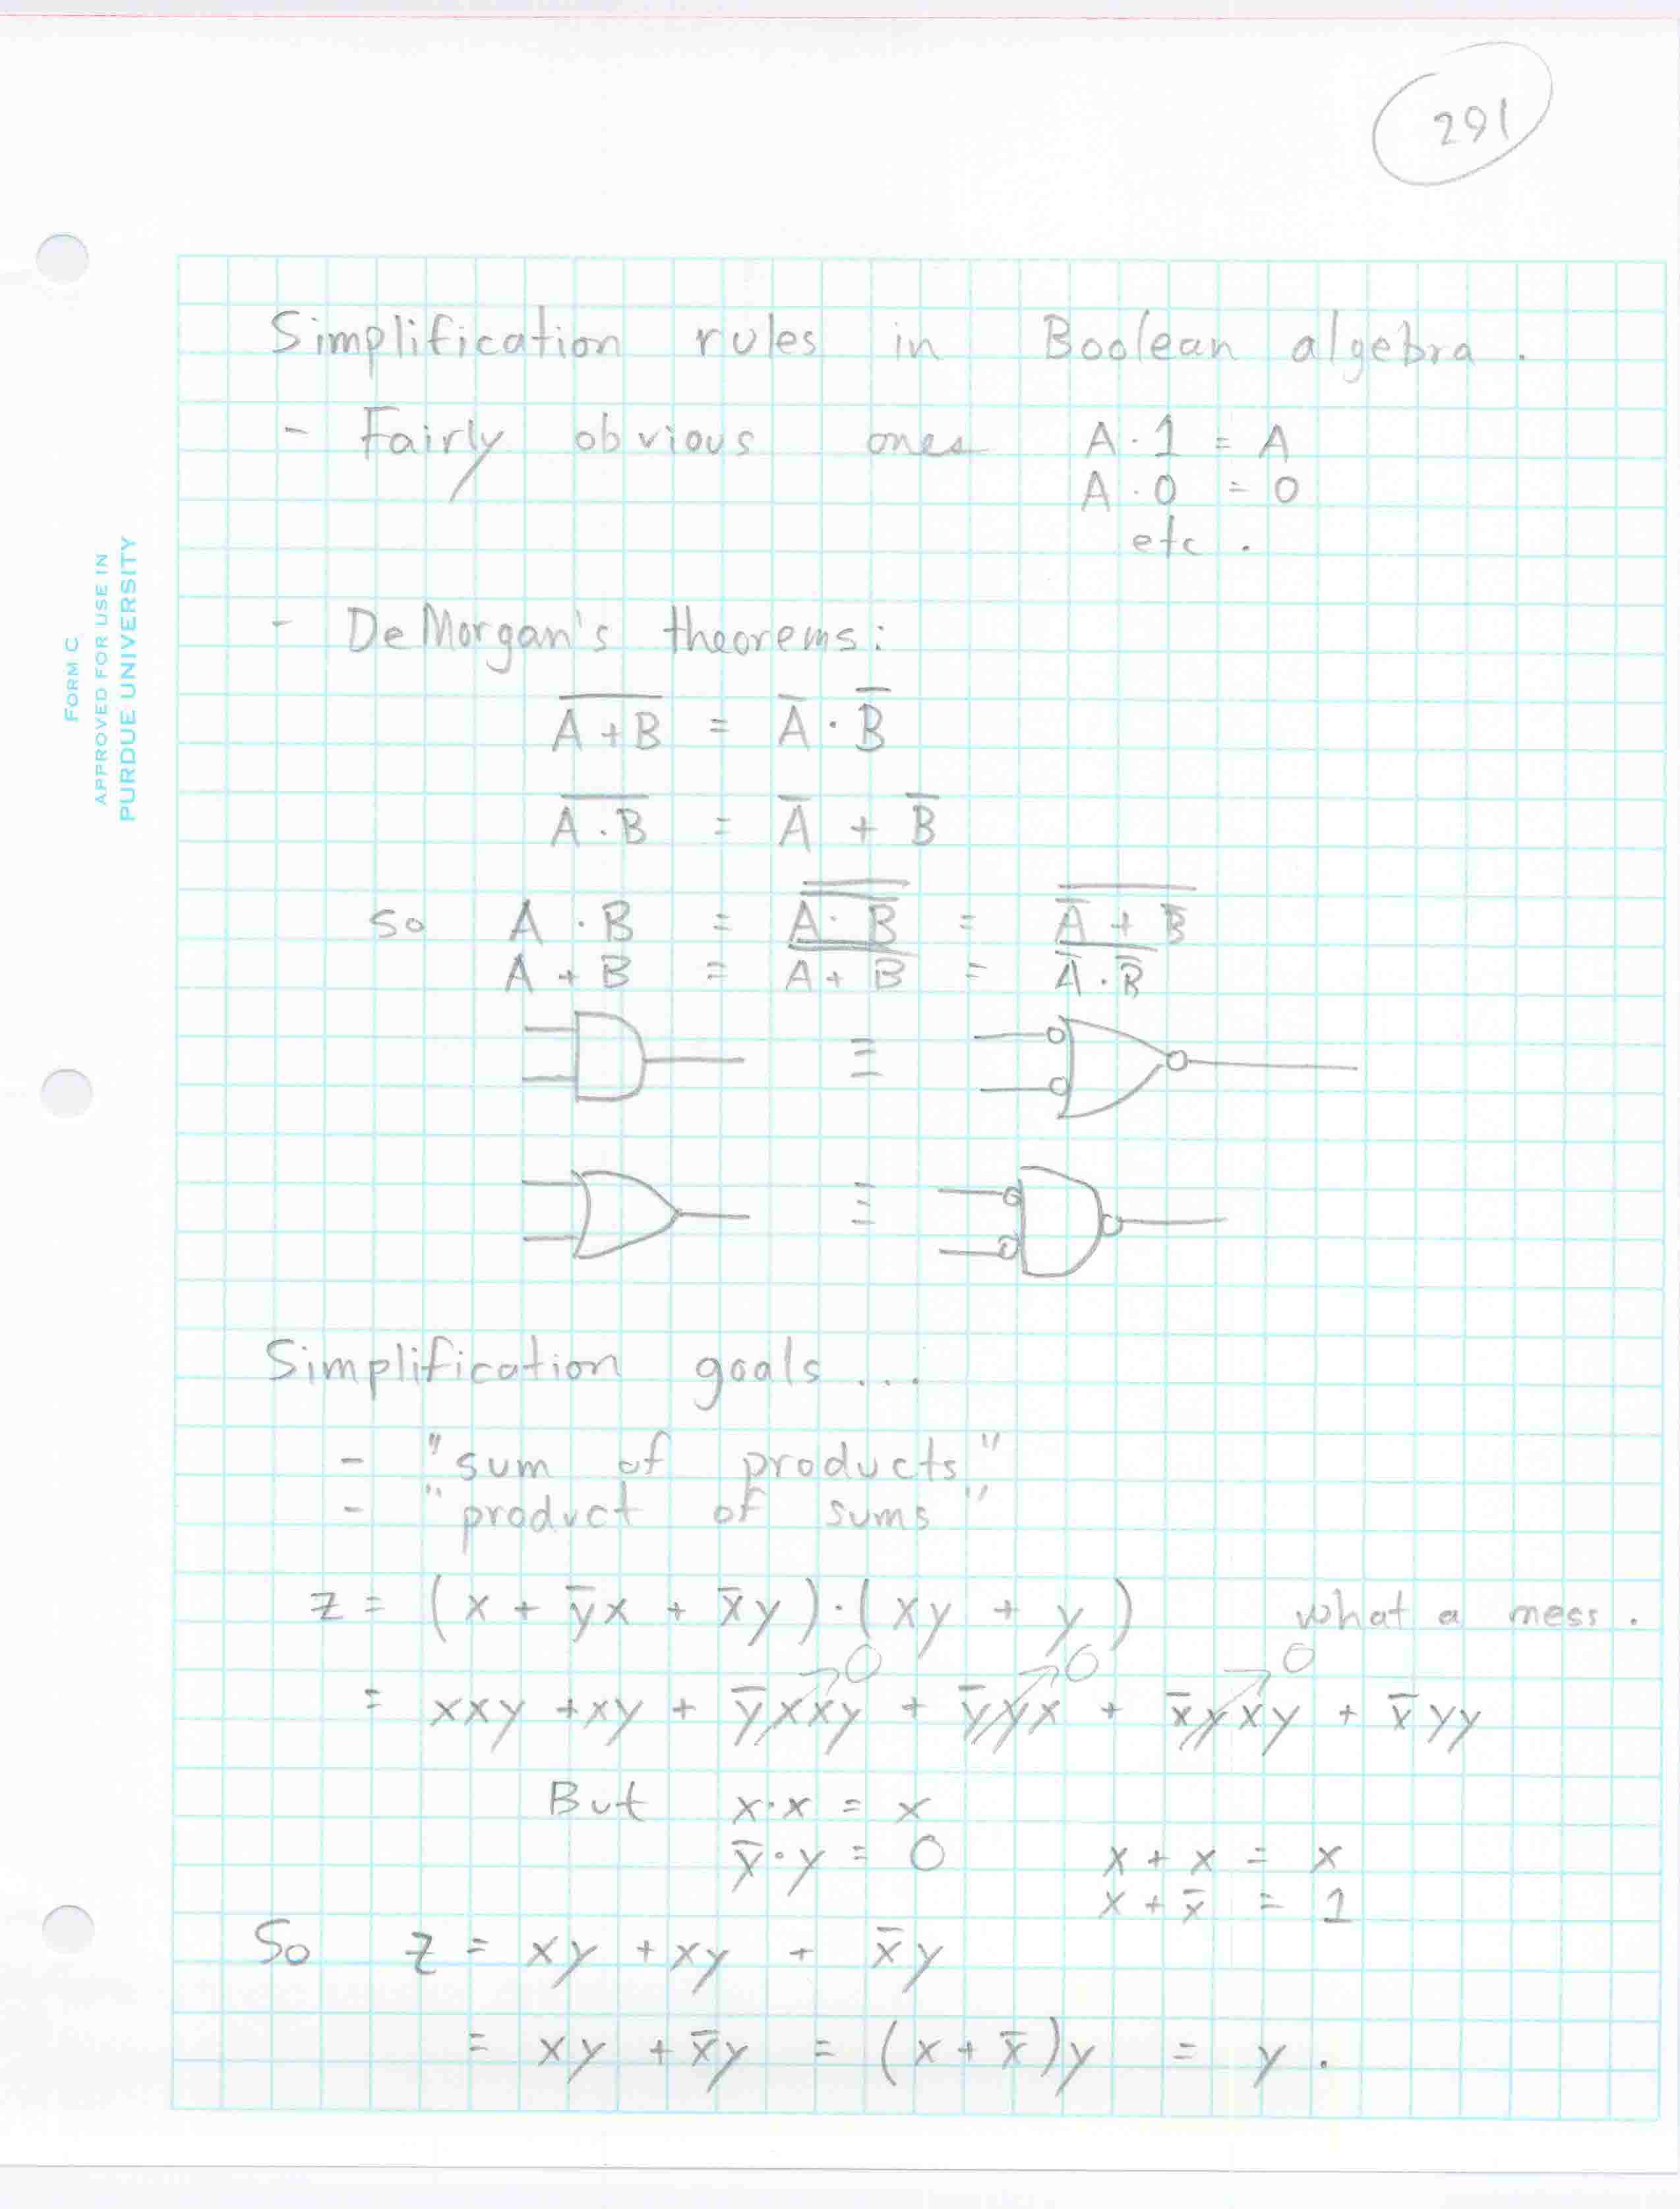 291
FORM C
APPROVED FOR USE IN
PURDUE UNIVERSITY
Simplification rules in Boolean algebra.
- Fairly obvious ones A · 1 = A
A · 0 = 0
etc.
- DeMorgan's theorems:
\overline{A + B} = \overline{A} · \overline{B}
\overline{A · B} = \overline{A} + \overline{B}
so A · B = \overline{\overline{A · B}} = \overline{\overline{A} + \overline{B}}
A + B = \overline{\overline{A + B}} = \overline{\overline{A} · \overline{B}}
≡
≡
Simplification goals ...
- "sum of products"
- "product of sums"
z = (x + \overline{y}x + \overline{x}y)·(xy + y) what a mess.
0 0 0
= xxy + xy + \overline{y}xxy + \overline{y}yx + \overline{x}yxy + \overline{x}yy
But x·x = x
\overline{y}·y = 0 x + x = x
x + \overline{x} = 1
So z = xy + xy + \overline{x}y
= xy + \overline{x}y = (x + \overline{x})y = y.